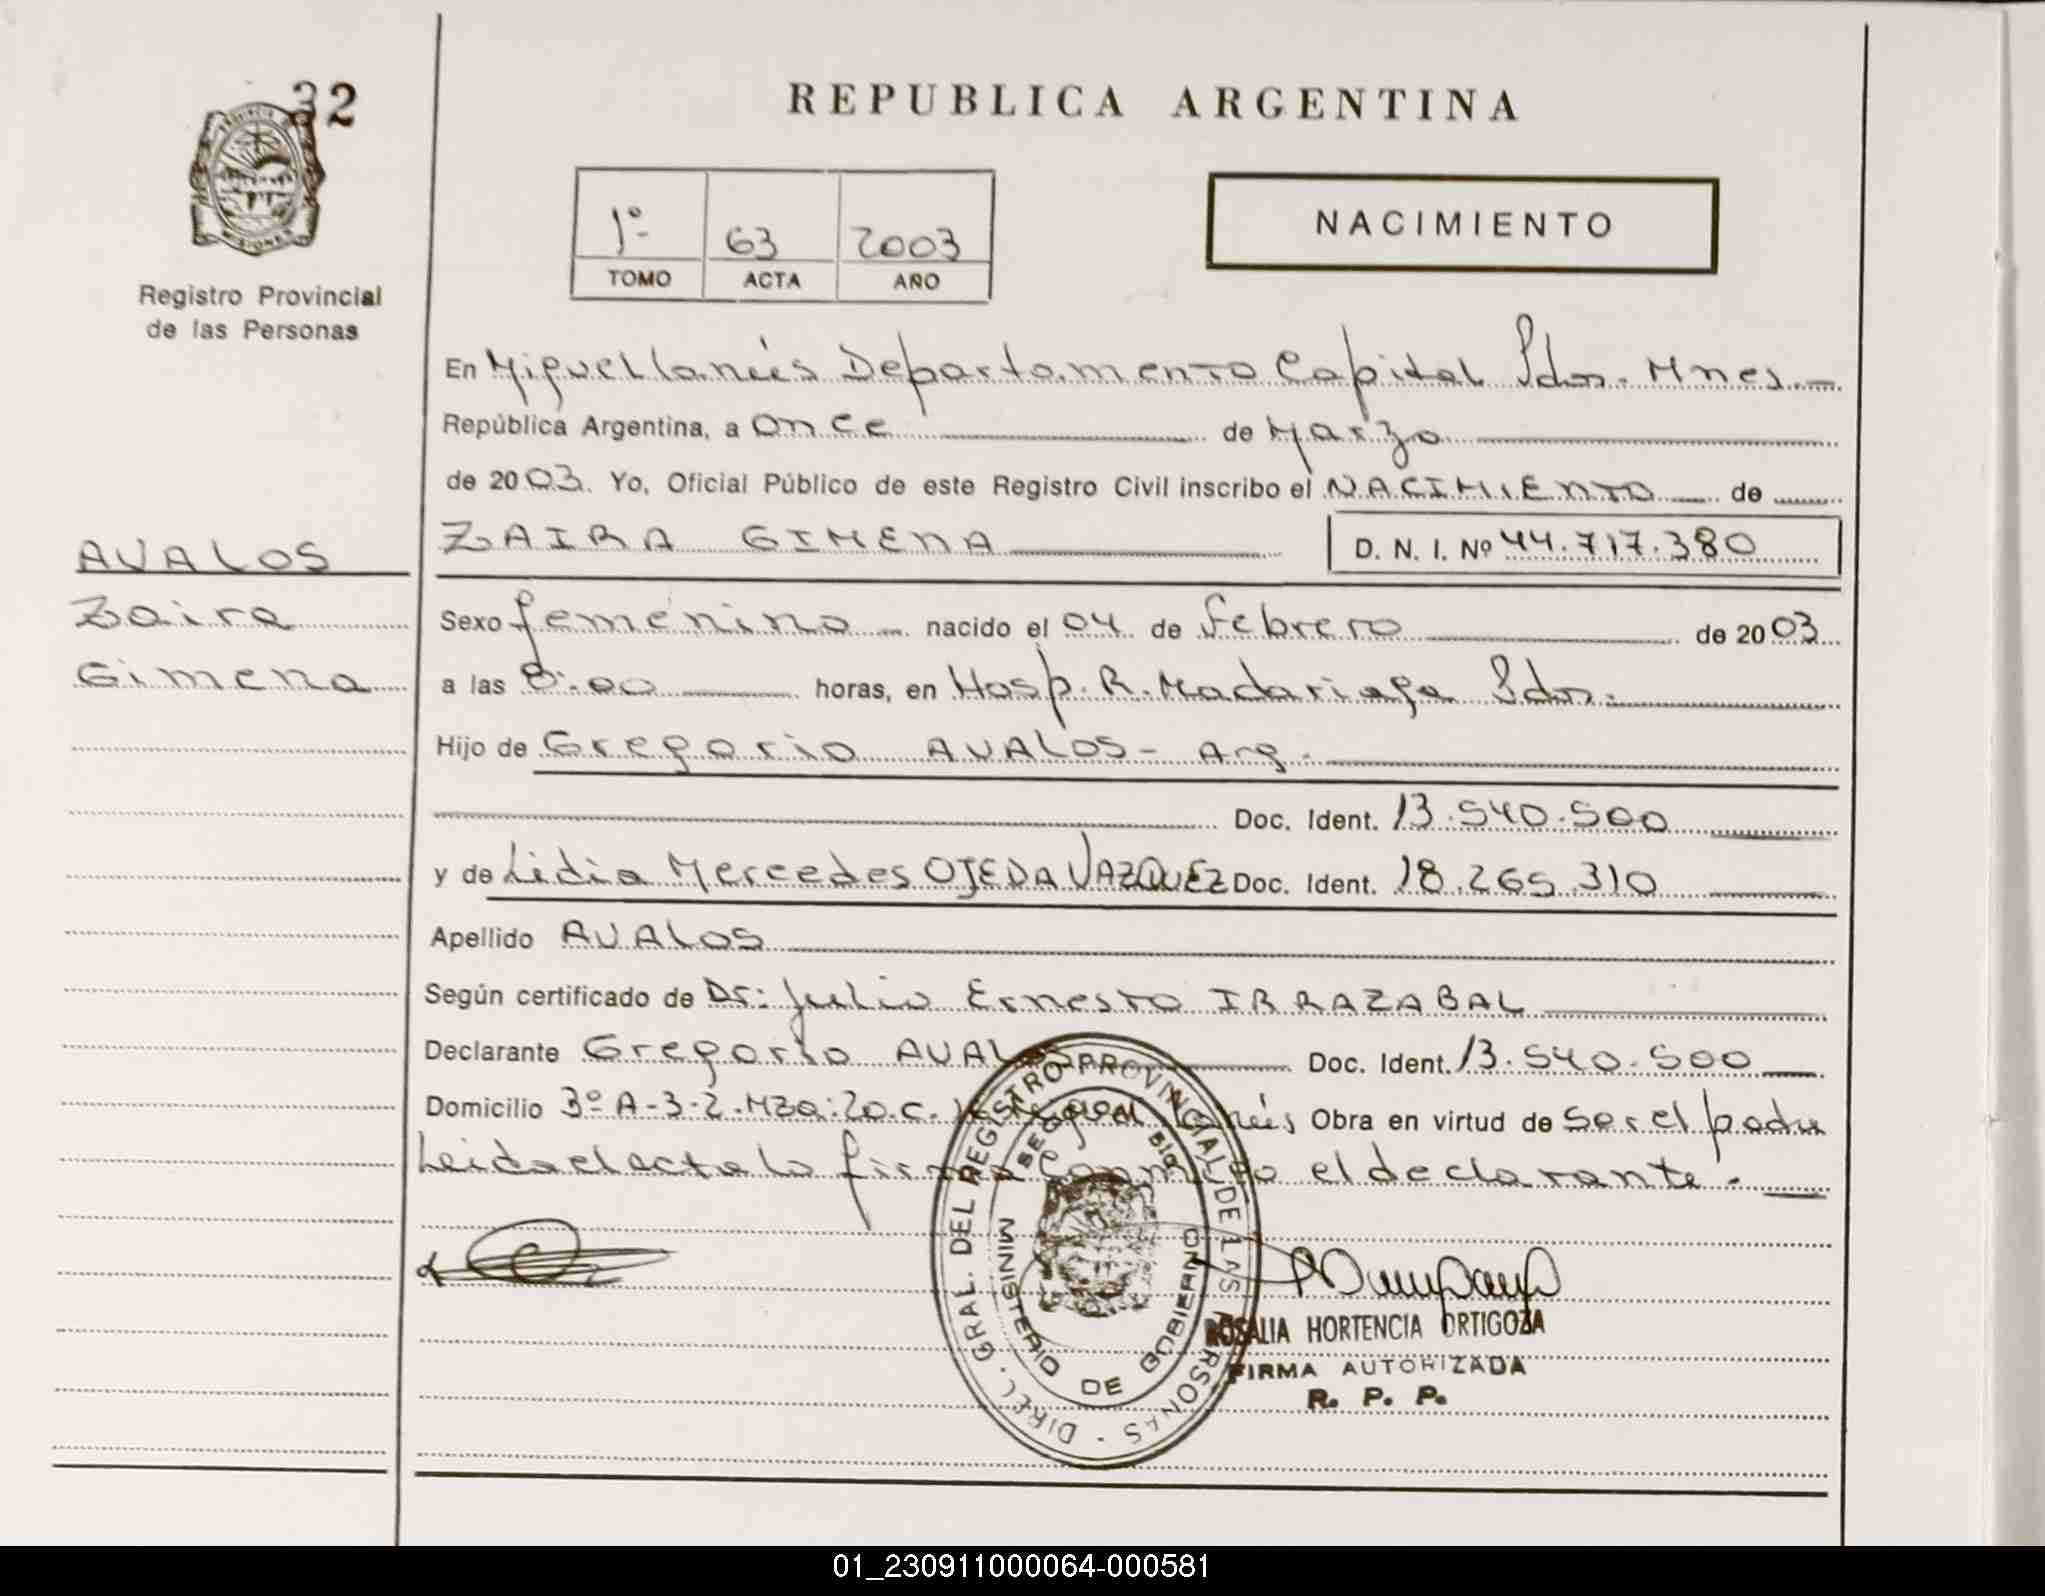 32
PROVINCIA DE
MISIONES
Registro Provincial
de las Personas
AVALOS
Zaira
Gimena
REPUBLICA ARGENTINA
1º 63 2003
TOMO ACTA AÑO
NACIMIENTO
En Miguel Lanús Departamento Capital Pdas. Mnes.
República Argentina, a once de Marzo
de 2003. Yo, Oficial Público de este Registro Civil inscribo el NACIMIENTO de
ZAIRA GIMENA D. N. I. Nº 44.717.380
Sexo femenino nacido el 04 de Febrero de 2003
a las 8:00 horas, en Hosp. R. Madariaga Pdas.
Hijo de Gregorio AVALOS - Arg.
Doc. Ident. 13.540.500
y de Lidia Mercedes OJEDA VAZQUEZ Doc. Ident. 18.265.310
Apellido AVALOS
Según certificado de Dr: Julio Ernesto IRRAZABAL
Declarante Gregorio AVALOS Doc. Ident. 13.540.500
Domicilio 3º A-3-2-Mza: 20.C. Lanús Obra en virtud de ser el padre
Leida el acta la firma conmigo el declarante.
DIREC. GRAL. DEL REGISTRO PROVINCIAL DE LAS PERSONAS
MINISTERIO DE GOBIERNO
ROSALIA HORTENCIA ORTIGOZA
FIRMA AUTORIZADA
R. P. P.
01_230911000064-000581